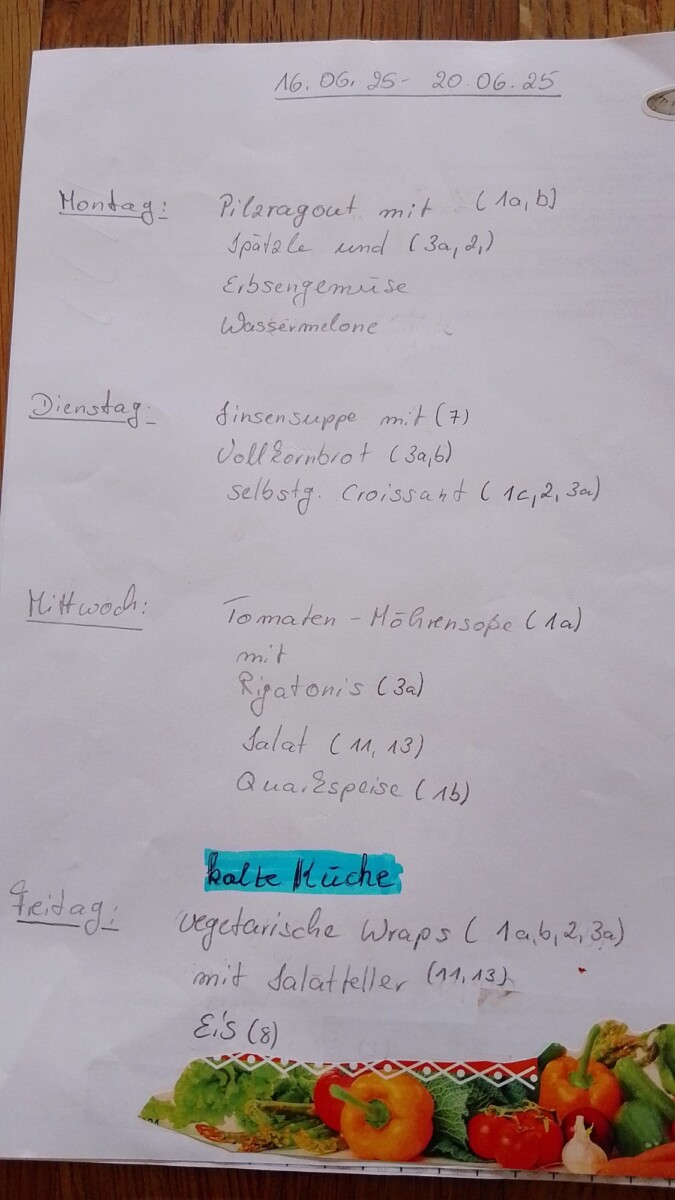 16.06.25 - 20.06.25
Montag: Pilzragout mit (1a,b)
Spätzle und (3a,2,)
Erbsengemüse
Wassermelone
Dienstag: Linsensuppe mit (7)
Vollkornbrot (3a,b)
selbstg. Croissant (1c,2,3a)
Mittwoch: Tomaten-Möhrensoße (1a)
mit
Rigatonis (3a)
Salat (11,13)
Quarkspeise (1b)
kalte Küche
Freitag: vegetarische Wraps (1a,b,2,3a)
mit Salatteller (11,13)
Eis (8)